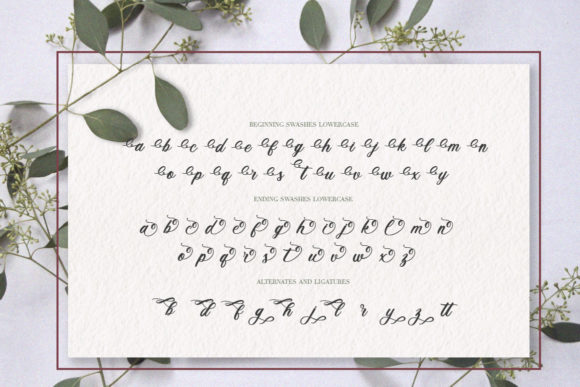 BEGINNING SWASHES LOWERCASE
a b c d e f g h i j k l m n
o p q r s t u v w x y
ENDING SWASHES LOWERCASE
a b c d e f g h i j k l m n
o p q r s t u v w x z
ALTERNATES AND LIGATURES
b d f g h j l r y z tt